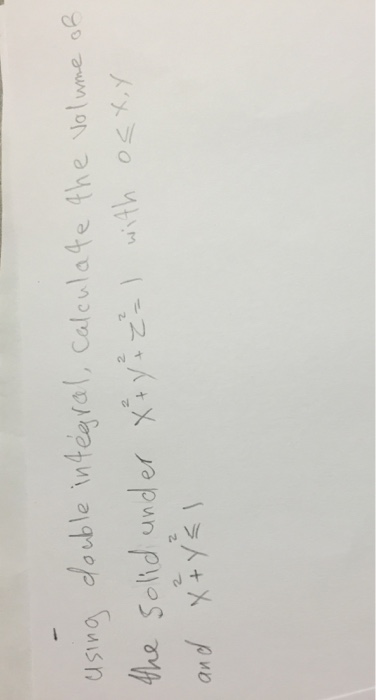 using double intégral, calculate the volume of
the solid under x²+y²+z²=1 with 0≤x,y
and x²+y²≤1